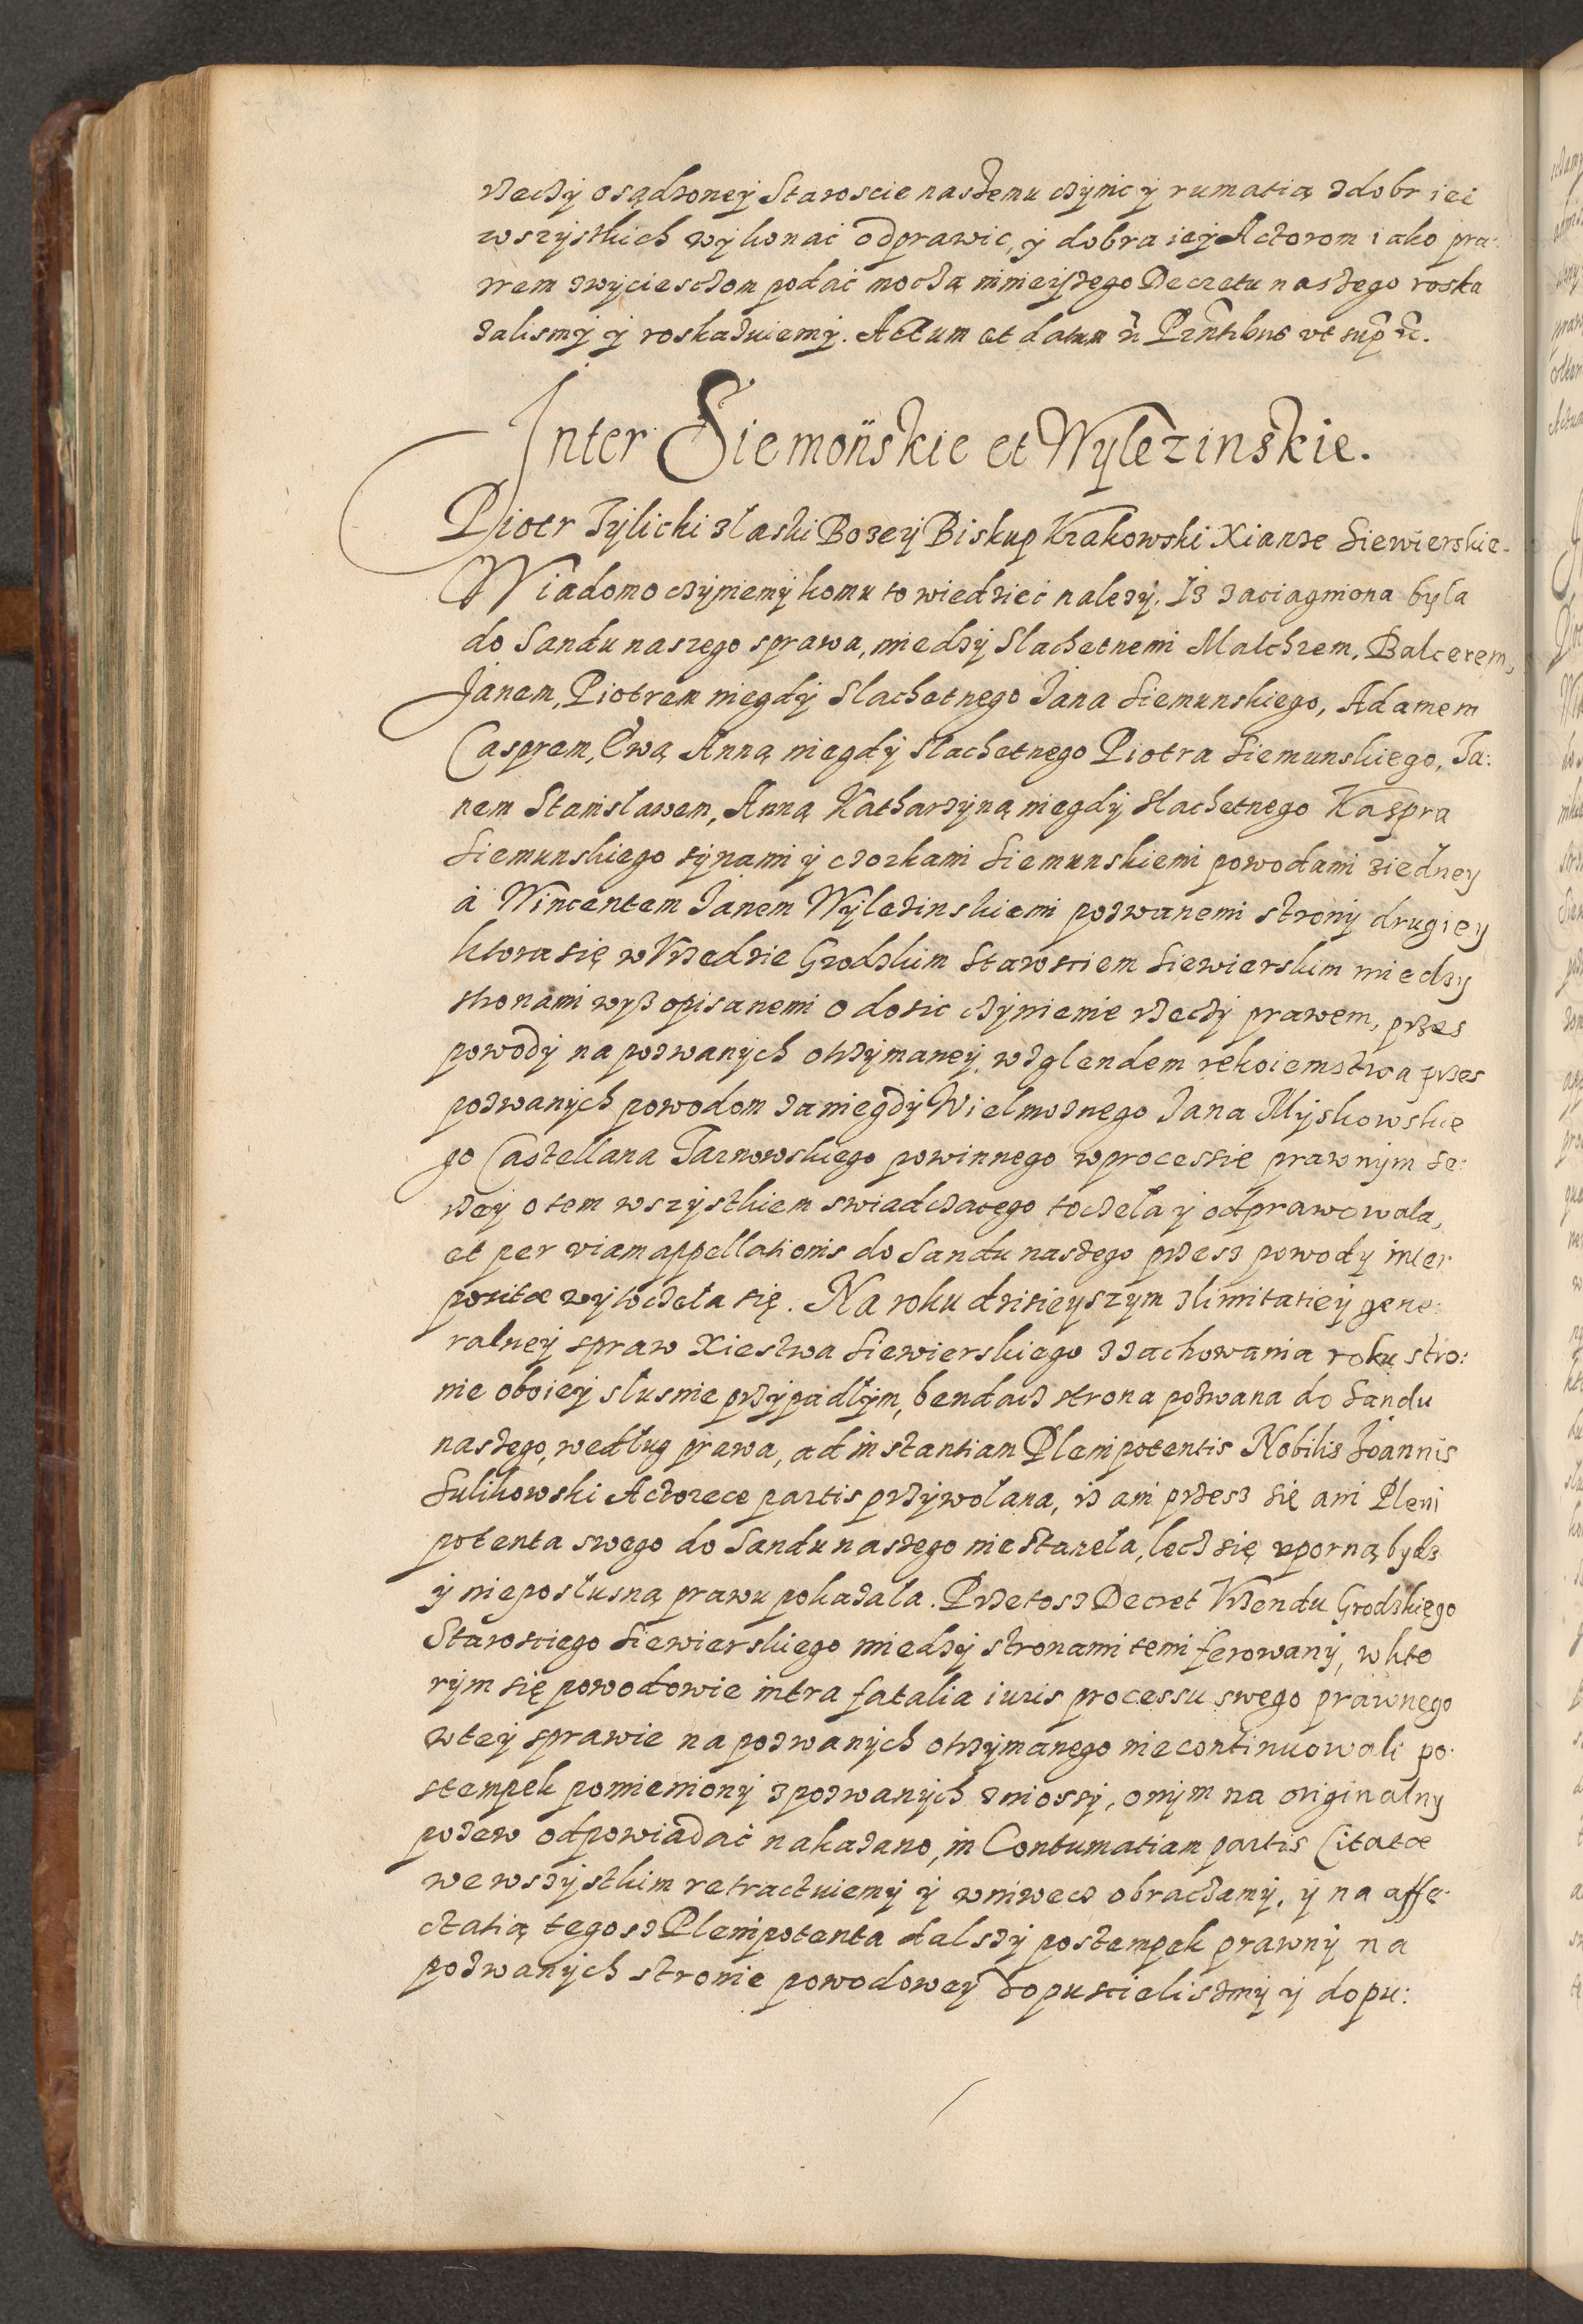 rzeczÿ osądzoneÿ Staroscie naszemu czÿnic ÿ rumatią zdobr iei
wszÿstkich wÿkonać odprawic, ÿ dobra ieÿ Actorom iako pra:
wem zwÿcieszcżom podać moczą ninieÿszego Decretu naszego roska
zalismÿ ÿ roskazuiemÿ. Actum et datum ũ Pr̃ntibus ut sup̃ ĩc.
Inter Siemoński et Wylezinskie.
Piotr Tÿlicki złaski Bozeÿ Biskup Krakowski Xianze Siewierskie.
Wiadomo czÿnemÿ komu to wiedziec nalezÿ. Iz zaciagniona była
do Sandu naszego sprawa, miedzÿ Slachetnemi Malchrem, Balcerem,
Janem, Piotrem niegdÿ Slachetnego Jana Siemunskiego, Adamem
Casprem, Ewą Anną niegdÿ slachetnego Piotra Siemunskiego, Ja:
nem Stanisławem, Anną Katharzÿną niegdÿ Slachetnego Kaspra
Siemunskiego sÿnami ÿ czorkami Siemunskiemi powodami ziedney
à Wincentem Janem Wÿlezinskiemi pozwanemi stronÿ drugiey
ktora się w Vrzedzie Grodzkim Starosciem Siewierskim miedzy
stronami wyß opisanemi o dosic czÿnienie rzeczÿ prawem, przes
powodÿ na pozwanÿch otrzÿmaneÿ, wzglendem rękoiemstwa przes
pozwanÿch powodom za niegdÿ Wielmoznego Jana Mÿskowskie
go Castellana Tarnowskiego powinnego wprocessie prawnÿm se:
rzeÿ o tem wszÿstkiem swiadczacego toczeła ÿ odprawowała,
et per viam appellationis do Sandu naszego przesz powody inter
positæ wÿtoczeła się. Na roku dzisieÿszym zlimitatieÿ gene:
ralneÿ spraw Xiestwa Siewierskiego zzachowania roku stro:
nie oboieÿ słusnie przÿpadłÿm, bendacz strona pozwana do Sandu
naszego, według prawa, ad instantiam Plenipotentis Nobilis Joannis
Sulikowski Actoreæ partis przÿwołana, iz ani przesz się ani Pleni
potenta swego do Sandu naszego nie stazeła, lecz się uporną bydz
ÿ nieposłusną prawu pokazała. Przetosz Decret Vrzendu Grodzkięgo
Starosciego Siewierskiego miedzÿ stronami temi ferowanÿ, w kto
rÿm się powodowie intra fatalia iuris processu swego prawnego
wteÿ sprawie na pozwanÿch otrzÿmanego nie continuowali po:
stempek pomienionÿ zpozwanÿch zniossÿ, onÿm na originalny
pozew odpowiadać nakazano, in Contumatiam partis Citatæ
we wszÿstkim retractuiemÿ ÿ wniwecz obraczamÿ, ÿ na affe:
ctatią tegosz Plenipotenta dalszÿ postempek prawnÿ na
pozwanÿch stronie powodoweÿ dopuscielismÿ ÿ dopu: